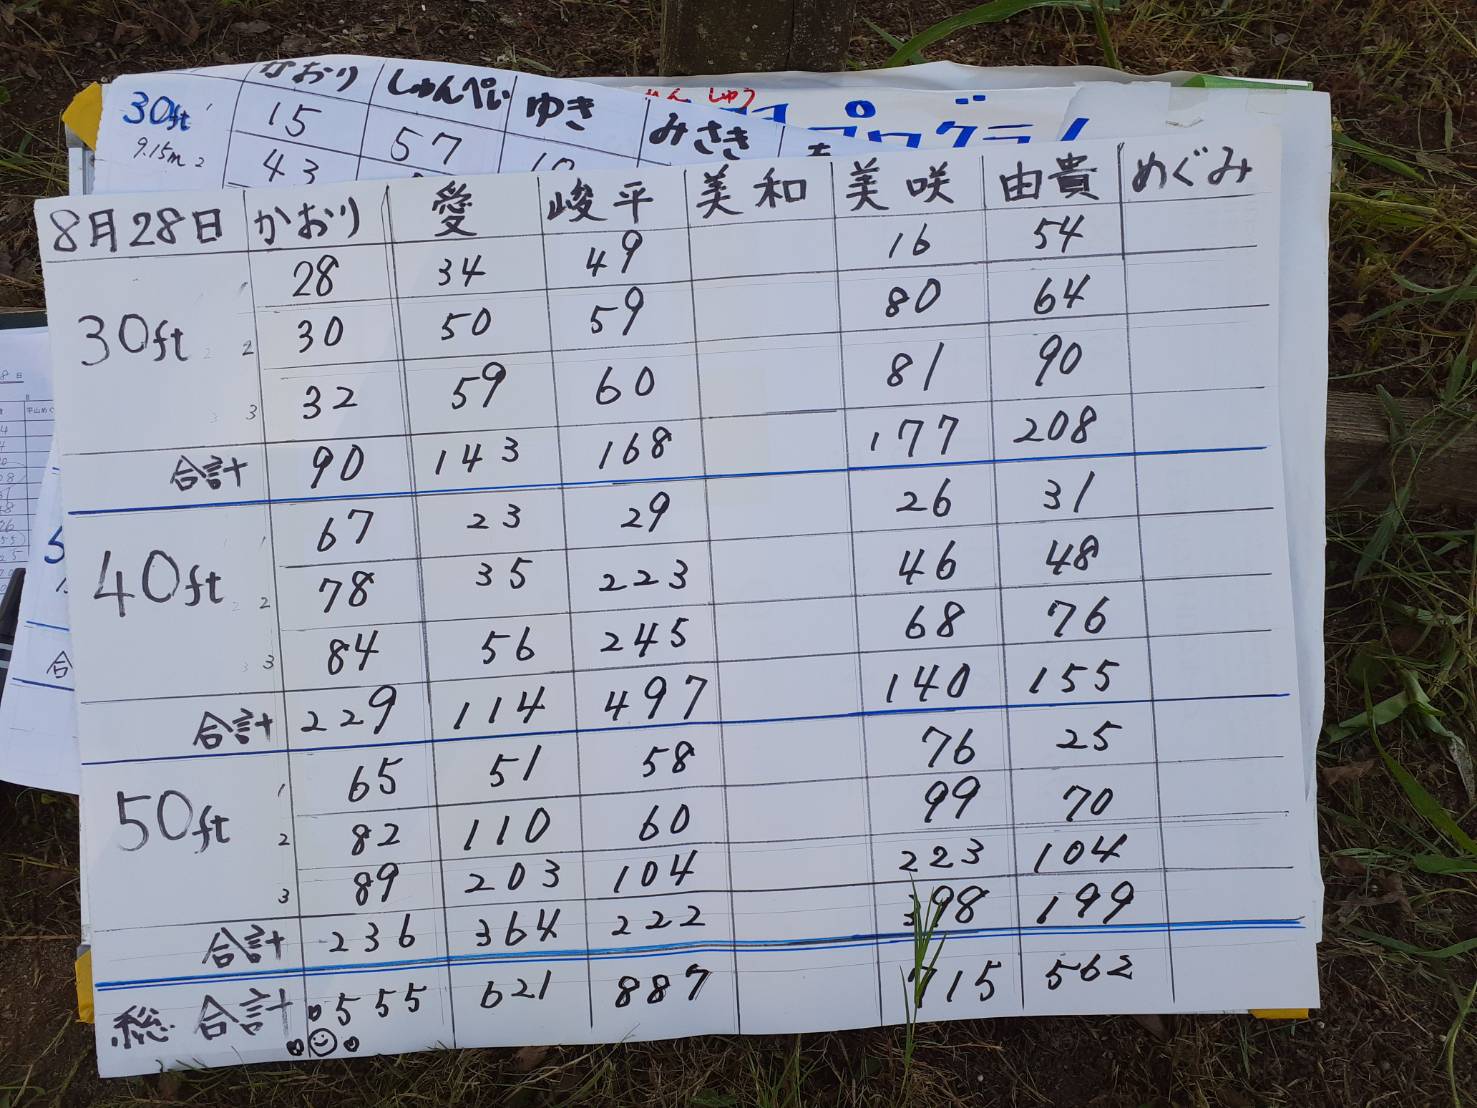 かおり しゅんぺい ゆき みさき
30ft 15 57
9.15m 2 43
プログラム
8月28日 かおり 愛 峻平 美和 美咲 由貴 めぐみ
30ft 28 34 49 16 54
2 30 50 59 80 64
3 32 59 60 81 90
合計 90 143 168 177 208
40ft 67 23 29 26 31
2 78 35 223 46 48
3 84 56 245 68 76
合計 229 114 497 140 155
50ft 1 65 51 58 76 25
2 82 110 60 99 70
3 89 203 104 223 104
合計 236 364 222 398 199
総合計 555 621 887 715 562